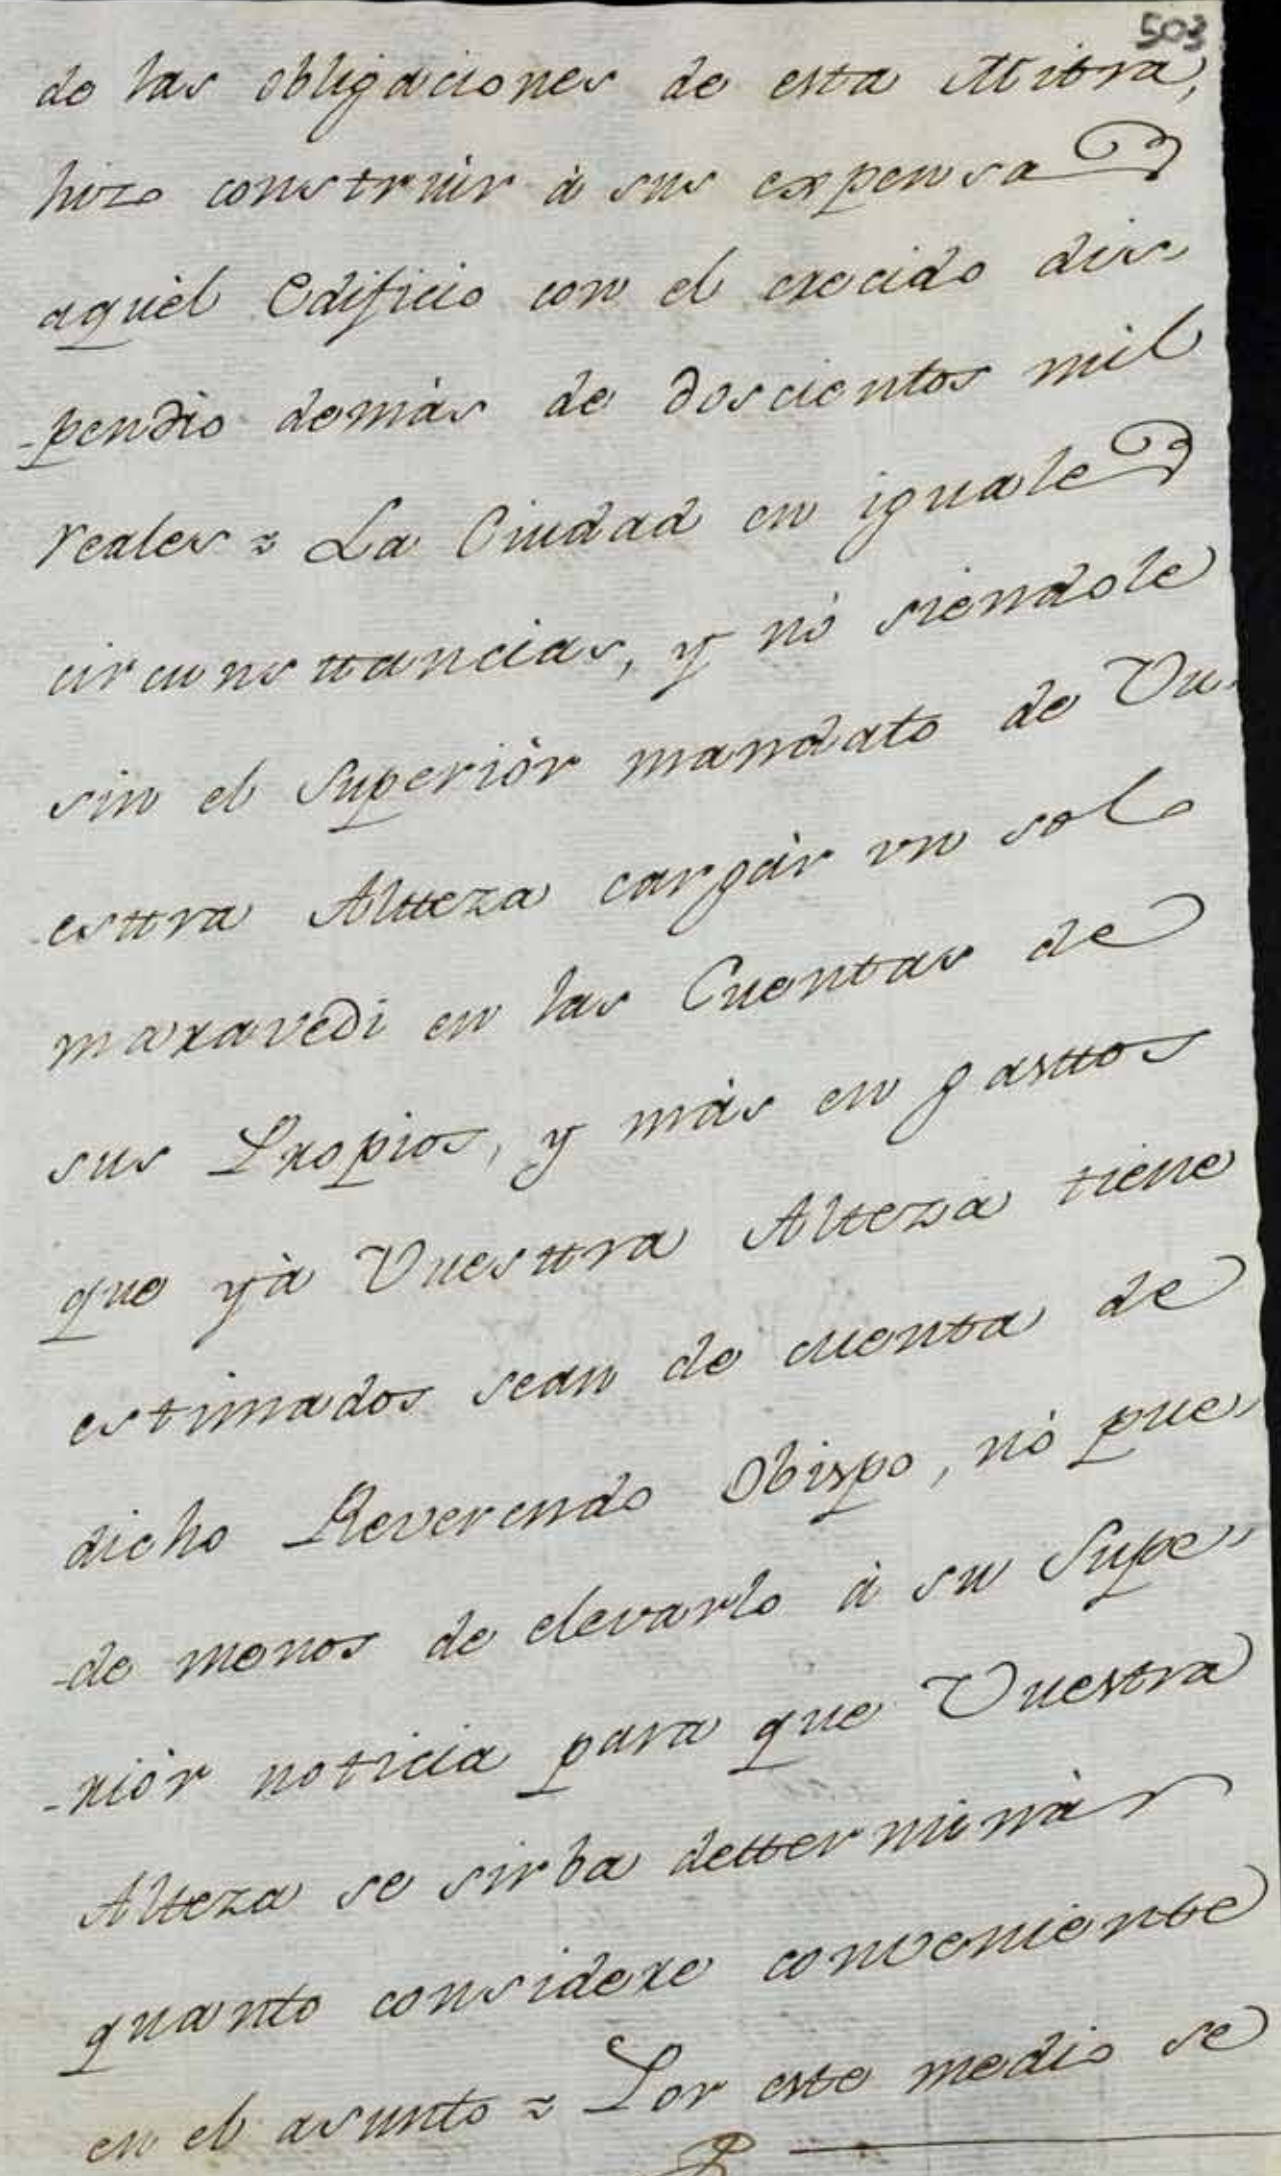 503
de las obligaciones de esta Mitra,
hizo construir à sus expensas
aquèl Edificio con el crecido dis-
-pendio demàs de doscientos mil
reales = La Ciudad en iguales
circunsttancias, y nò siendole
sin el Superiòr mandato de Vu-
-esttra Altteza cargàr un solo
maravedi en las Cuentas de
sus Propios, y màs en gasttos
que yà Vuesttra Altteza tiene
estimados sean de cuenta de
dicho Reverendo Obispo, nò pue-
-de menos de elevarlo à su Supe-
-riòr noticia para que Vuestra
Altteza se sirba detterminàr
quanto considere conveniente
en el asunto = Por este medio se